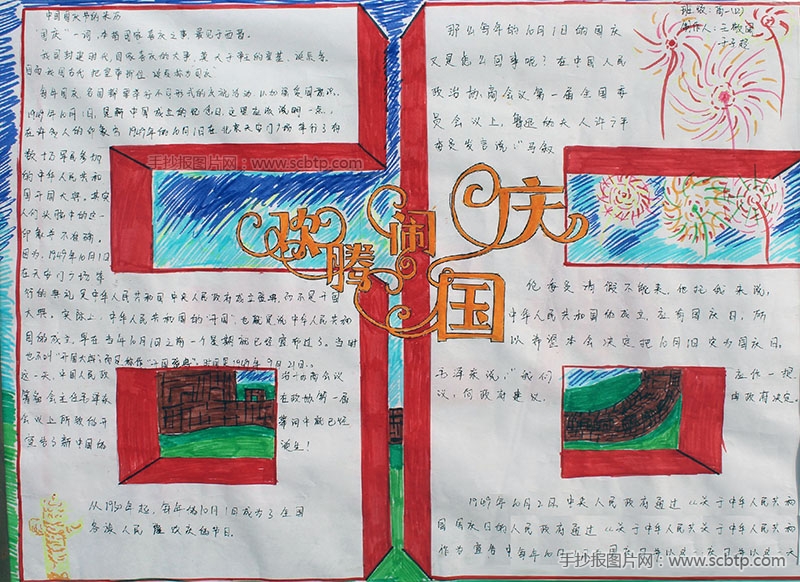 中国国庆节的来历
"国庆"一词,本指国家喜庆之事,最见于西晋。
我国封建时代,国家喜庆的大事,莫大于帝王的登基、诞辰等。
因而我国古代把皇帝即位、诞辰称为"国庆"。
每年国庆,各国都要举行不同形式的庆祝活动,以加强爱国意识。
1949年10月1日,是新中国成立的纪念日,这里应该说明一点,
在许多人的印象当中1949年的10月1日在北京天安门广场举行了有
数十万军民参加
的中华人民共和
国开国大典。其实,
人们头脑中的这一
印象并不准确。
因为,1949年10月1日
在天安门广场举
行的典礼是中华人民共和国中央人民政府成立盛典,而不是开国
大典。实际上,中华人民共和国的"开国",也就是说中华人民共和
国的成立,早在当年10月1日之前一个星期就已经宣布过了。当时
也不叫"开国大典",而是称作"开国盛典"。时间是1949年9月21日。
这一天,中国人民政 治协商会议
筹备会主任毛泽东 在政协第一届
会议上所致的开 幕词中就已经
宣告了新中国的 诞生!
从1950年起,每年的10月1日成为了全国
各族人民隆欢庆的节日。
欢腾闹国庆
班级:高一(2)
制作人:
那么每年的10月1日的国庆
又是怎么回事呢?在中国人民
政治协商会议第一届全国委
员会议上,鲁迅的夫人许广平
委员发言说:"马叙
伦委员请假不能来,他托我来说,
中华人民共和国的成立,应有国庆日,所
以希望本会决定把10月1日定为国庆日。
毛泽东说:"我们 应作一提
议,向政府建议, 由政府决定。
1949年10月2日,中央人民政府通过《关于中华人民共和
国国庆日的人民政府通过《关于中华人民共和
手抄报图片网:www.scbtp.com
手抄报图片网:www.scbtp.com
手抄报图片网:www.scbtp.com